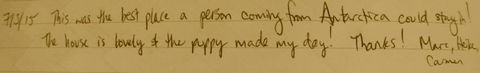 7/3/15 This was the best place a person coming from Antarctica could stay in!
The house is lovely & the puppy made my day! Thanks! Marc, Heike,
Carmen